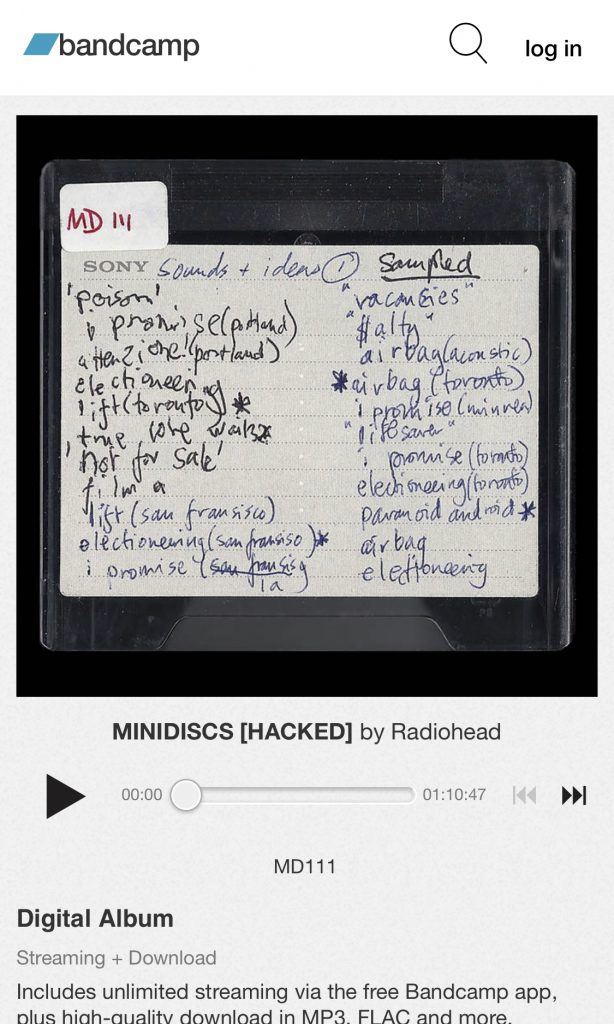 bandcamp
log in
MD 111
SONY sounds + ideas ① sampled
'poison'
i promise (portland)
attenzione! (portland)
electioneering
lift (toronto) *
true love waits *
'not for sale'
fi i'm a
lift (san fransisco)
electioneering (san fransiso) *
i promise (san fransis
la
"vacancies"
"$alty"
airbag (acoustic)
*airbag (toronto)
i promise (minnea
"lifesaver"
i promise (toronto)
electioneering (toronto)
paranoid android *
airbag
electioneering
MINIDISCS [HACKED] by Radiohead
00:00 01:10:47
MD111
Digital Album
Streaming + Download
Includes unlimited streaming via the free Bandcamp app,
plus high-quality download in MP3, FLAC and more.